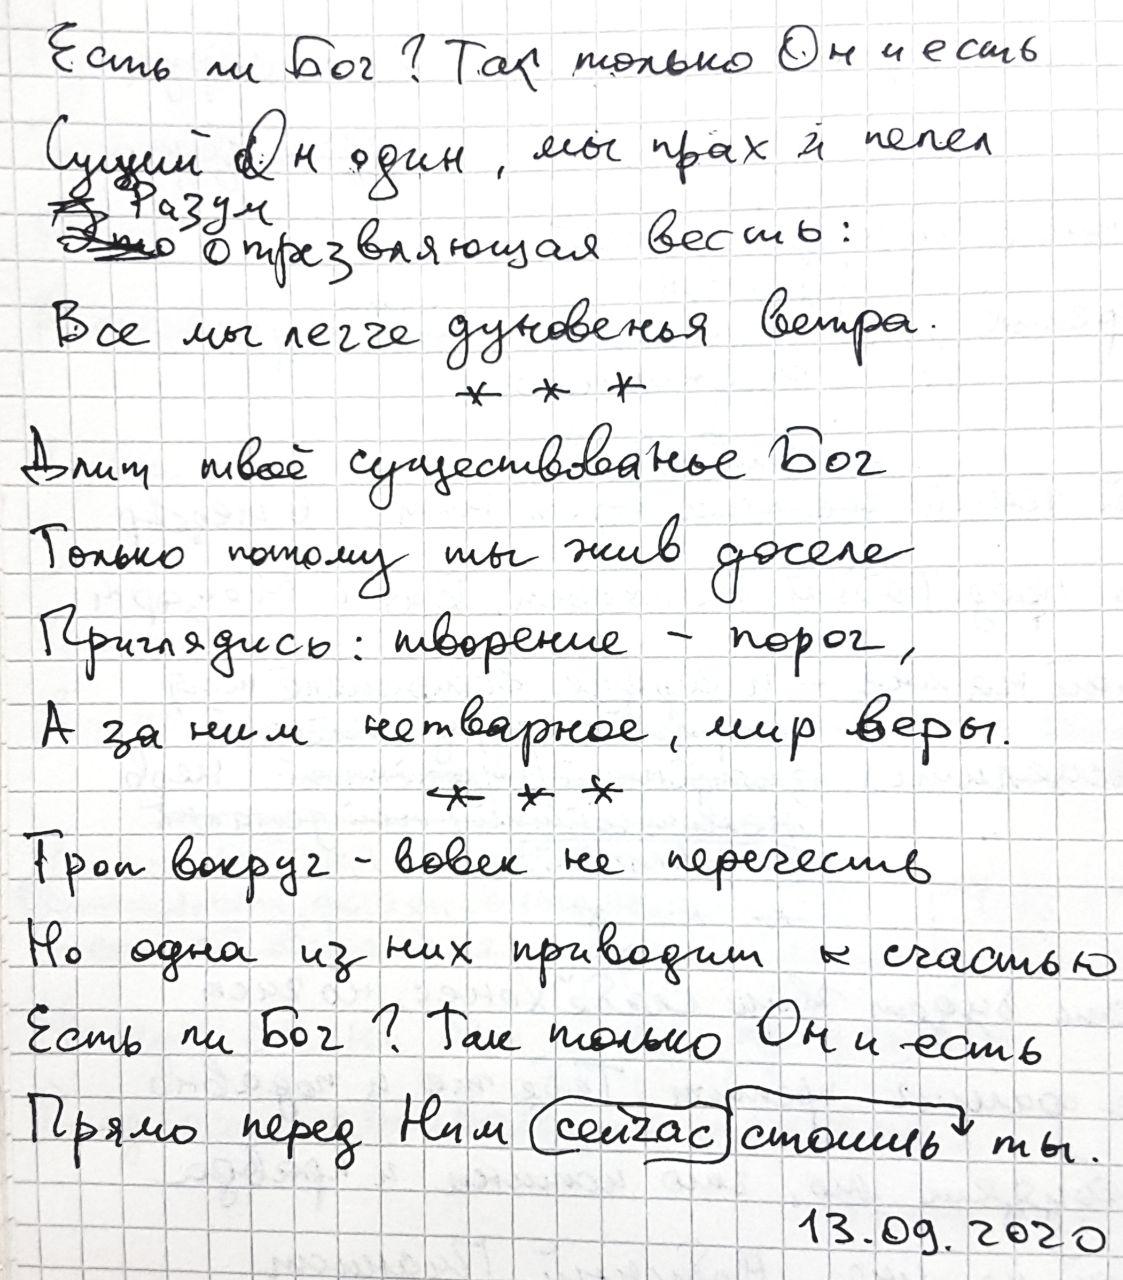 Есть ли Бог? Так только Он и есть
Сущий Он один, мы прах и пепел
Разум
Это отрезвляющая весть:
Все мы легче дуновенья ветра.
* * *
Длит твоё существованье Бог
Только потому ты жив доселе
Приглядись: творение - порог,
А за ним нетварное, мир веры.
* * *
Троп вокруг - вовек не перечесть
Но одна из них приводит к счастью
Есть ли Бог? Так только Он и есть
Прямо перед Ним сейчас стоишь ты.
13.09.2020